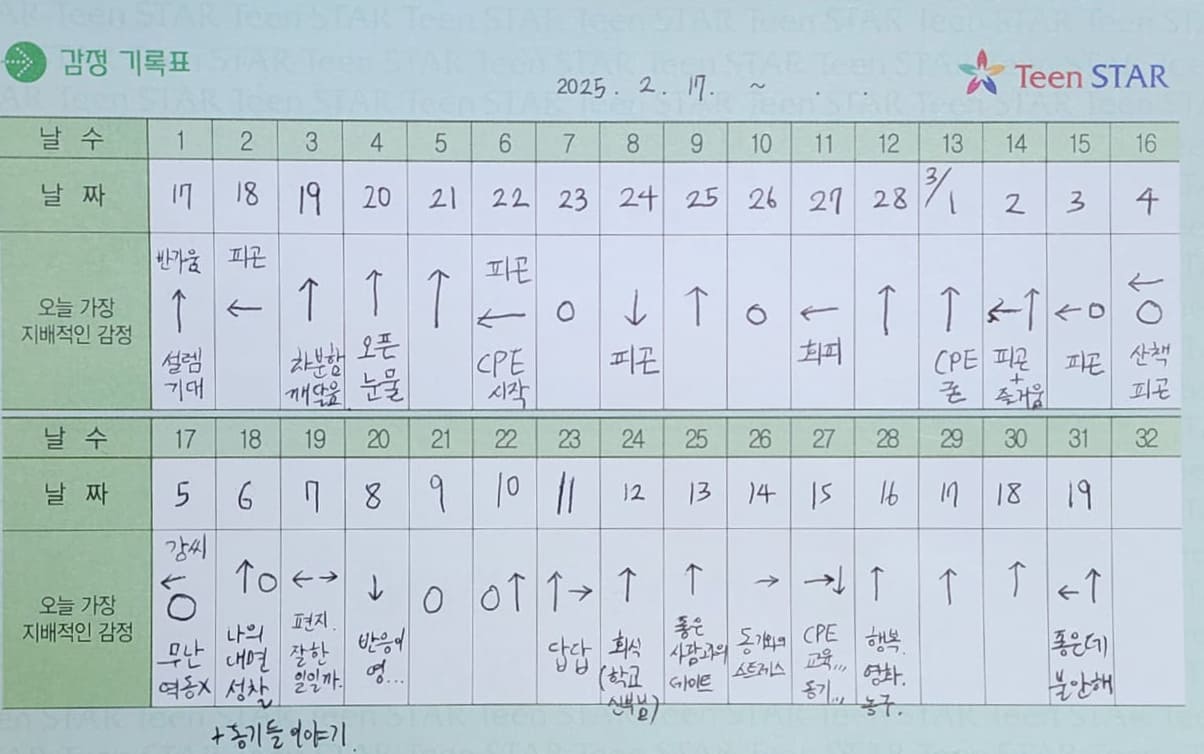 감정 기록표
2025. 2. 17. ~ . .
Teen STAR
날 수 1 2 3 4 5 6 7 8 9 10 11 12 13 14 15 16
날 짜 17 18 19 20 21 22 23 24 25 26 27 28 3/1 2 3 4
오늘 가장
지배적인 감정
반가움
↑
설렘
기대
피곤
←
↑
차분함
깨달음
↑
오픈
눈물
↑
피곤
←
CPE
시작
○
↓
피곤
↑
○
←
회피
↑
↑
CPE
굳
←↑
피곤
+
즐거움
←○
피곤
←
○
산책
피곤
날 수 17 18 19 20 21 22 23 24 25 26 27 28 29 30 31 32
날 짜 5 6 7 8 9 10 11 12 13 14 15 16 17 18 19
오늘 가장
지배적인 감정
감씨
←
○
무난
역동X
↑○
나의
내면
성찰
+동기들 이야기.
←→
편지.
잘한
일일까.
↓
반응이
영...
○
○↑
↑→
답답
↑
회식
(학교
신부님)
↑
좋은
사람과의
데이트
→
동기와의
스트레스
→↓
CPE
교육...
동기...
↑
행복.
영화.
농구.
↑
↑
←↑
좋은데
불안해